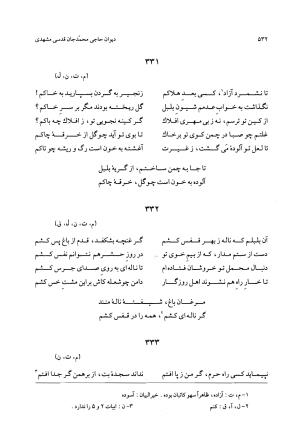 ۵۳۲
دیوان حاجی محمدجان قدسی مشهدی
۳۳۱
(م، ت، ن، ل)
تا نشمرد آزاد، کسی بعد هلاکم زنجیر به گردن بسپارید به خاکم!
نگذاشت به خواب عدمم شیون بلبل گل ریخته بودند مگر بر سر خاکم؟
از کین تو ترسم، نه ز بی مهری افلاک گر کینه نجویی تو، ز افلاک چه باکم؟
غلتم چو صبا در چمن کوی تو بر خاک تا بوی تو آید چو گل از خرقه چاکم
تا لعل تو آلوده می گشت، ز غیرت آغشته به خون است رگ و ریشه چو تاکم
تا جا به چمن ساختم، از گریه بلبل
آلوده به خون است چو گل، خرقه چاکم
۳۳۲
(م، ت، ن، آ، ق)
آن بلبلم که ناله ز بهر قفس کشم گر غنچه بشکفد، قدم از باغ پس کشم
دست از ستم مدار، که از بیم خوی تو در روز حشر هم نتوانم نفس کشم
دنبال محمل تو خروشان فتاده‌ام تا ناله‌ای به روی صدای جرس کشم
تا خار راهم نشوند اهل روزگار دامن چو شعله کاش بر این مشت خس کشم
مرغان باغ، شیفته ناله منند
گر ناله‌ای کشم، همه را در قفس کشم
۳۳۳
(م، ت، ن)
نپیماید کسی راه حرم، گر من ز پا افتم نداند سجده بت، از برهمن گر جدا افتم
۱- م، ت: آزاد، ظاهراً سهو کاتبان بوده. خیرالبیان: آسوده
۲- ل، آ، ق: کنم
۳- ن: ابیات ۲ و ۵ را ندارد.